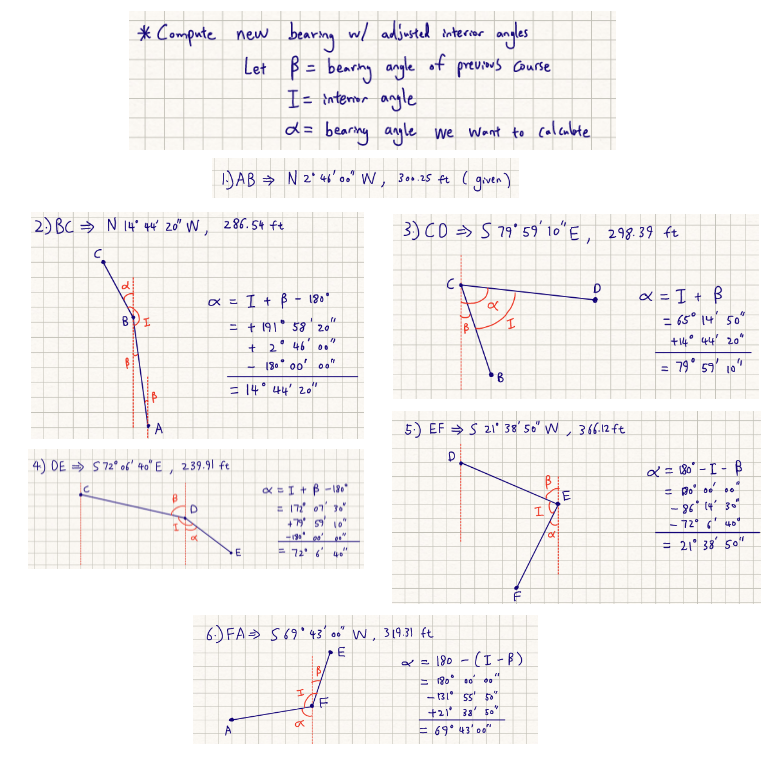 * Compute new bearing w/ adjusted interior angles
Let β = bearing angle of previous course
I = interior angle
α = bearing angle we want to calculate
1.) AB ⇒ N 2° 46' 00" W, 300.25 ft (given)
2.) BC ⇒ N 14° 44' 20" W, 286.54 ft
C
α
B
I
β
β
A
α = I + β - 180°
= + 191° 58' 20"
+ 2° 46' 00"
- 180° 00' 00"
= 14° 44' 20"
3.) CD ⇒ S 79° 59' 10" E, 298.39 ft
C
D
α
β
I
B
α = I + β
= 65° 14' 50"
+14° 44' 20"
= 79° 59' 10"
4) DE ⇒ S 72° 06' 40" E, 239.91 ft
C
β
D
I
α
E
α = I + β - 180°
= 172° 07' 30"
+79° 59' 10"
-180° 00' 00"
= 72° 6' 40"
5.) EF ⇒ S 21° 38' 50" W, 366.12 ft
D
β
E
I
α
F
α = 180° - I - β
= 180° 00' 00"
- 86° 14' 30"
- 72° 6' 40"
= 21° 38' 50"
6.) FA ⇒ S 69° 43' 00" W, 319.31 ft
E
β
I
F
α
A
α = 180 - (I - β)
= 180° 00' 00"
- 131° 55' 50"
+21° 38' 50"
= 69° 43' 00"